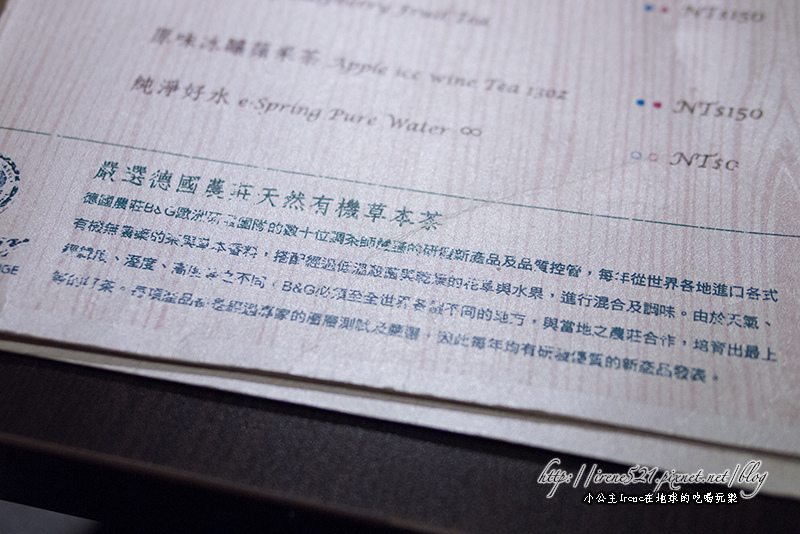 Fruit Tea NT$150
原味冰釀蘋果茶 Apple ice wine Tea 130z NT$150
純淨好水 e-Spring Pure Water ∞ NT$0
嚴選德國農莊天然有機草本茶
德國農莊B&G歐洲研發團隊的數十位調茶師精通的研發新產品及品質控管，每年從世界各地進口各式
有機無農藥的茶與草本香料，搭配經過低溫殺菌與乾燥的花草與水果，進行混合及調味。由於天氣、
溼度、高度之不同，B&G必須至全世界各個不同的地方，與當地之農莊合作，培育出最上
等的茶。每項產品都是經過專家的層層測試及嚴選，因此每年均有研發優質的新產品發表。
http://irene521.pixnet.net/blog
小公主Irene在地球的吃喝玩樂